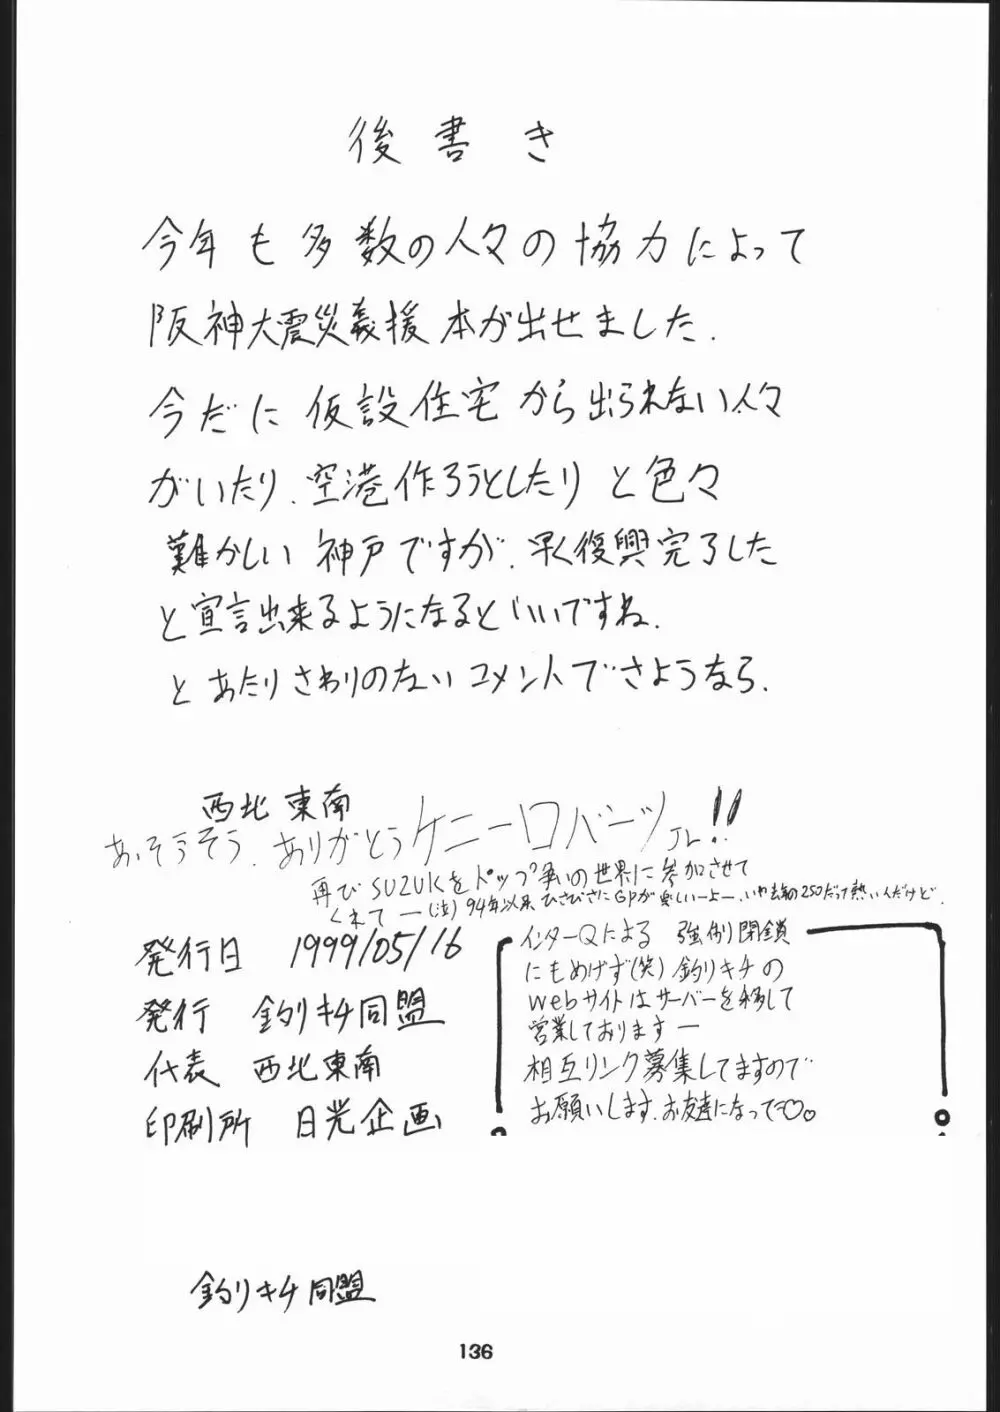 後書き
今年も多数の人々の協力によって
阪神大震災義援本が出せました.
今だに仮設住宅から出られない人々
がいたり.空港作ろうとしたりと色々
難かしい神戸ですが.早く復興完了した
と宣言出来るようになるといいですね.
とあたりさわりのないコメントでさようなら.
西北東南
あ、そうそう.ありがとうケニーロバーツJr.!!
再びSUZUKIをトップ争いの世界に参加させて
くれてー(泣)94年以来ひさびさにGPが楽しいーよー.いや去年の250だって熱いんだけど.
発行日 1999/05/16
発行 釣りキチ同盟
代表 西北東南
印刷所 日光企画
インターQによる 強制閉鎖
にもめげず(笑)釣りキチの
webサイトはサーバーを移して
営業しておりますー
相互リンク募集してますので
お願いします.お友達になって♡♡
釣りキチ同盟
136